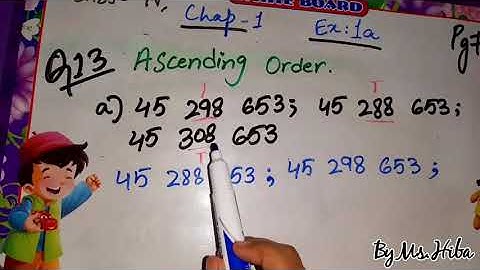 BOARD
Chap-1 Ex:1a
Q13 Ascending Order.
a) 45 298 653; 45 288 653;
45 308 653
45 288 653; 45 298 653;
By Ms. Hiba